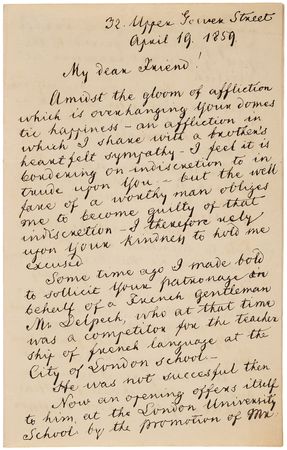 32. Upper Gower Street
April 19. 1859
My dear Friend!
Amidst the gloom of affliction
which is overhanging Your domes
tic happiness - an affliction in
which I share with a brother's
heartfelt sympathy - I feel it is
bordering on indiscretion to in
trude upon You - but the well
fare of a worthy man obliges
me to become guilty of that
indiscretion - I therefore rely
upon Your kindness to hold me
excused
Some time ago I made bold
to sollicit Your patronage in
behalf of a French Gentleman
Mr Delpech, who at that time
was a competitor for the teacher
ship of french language at the
City of London school -
He was not succesful then
Now an opening offers itself
to him at the London University
School by the promotion of Mr